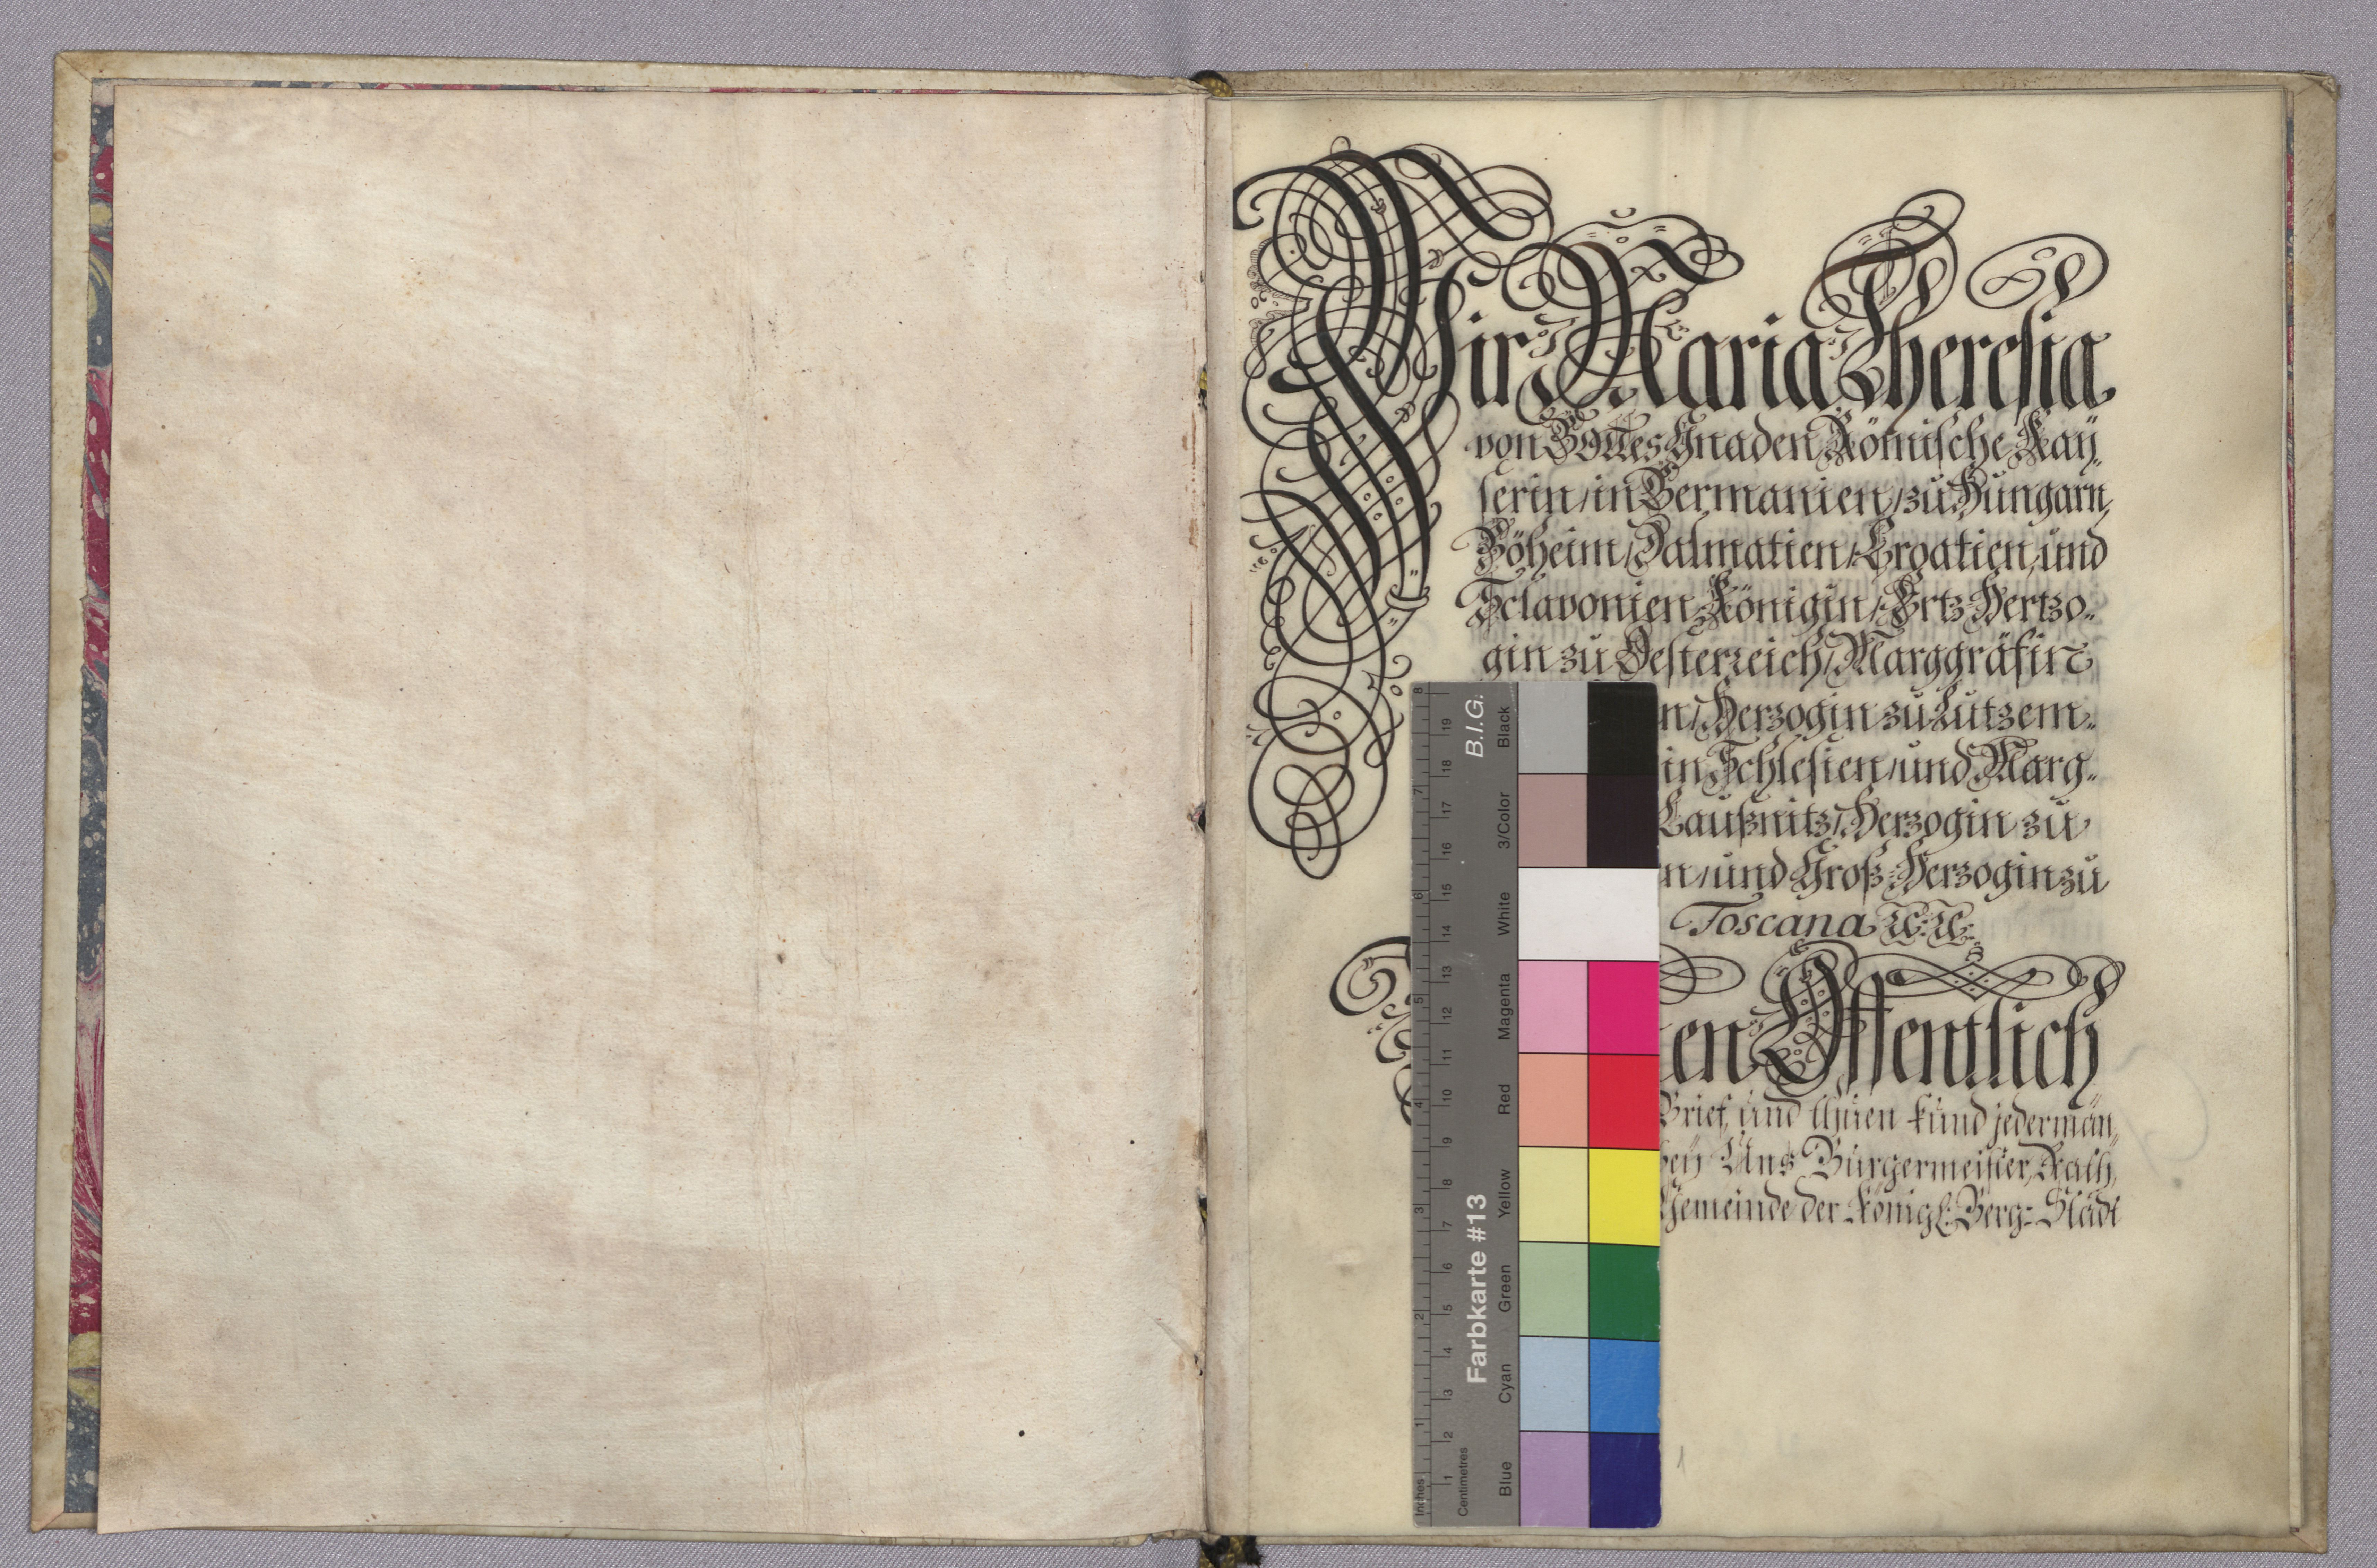 Wir Maria Theresia
von GOttes Gnaden Römische Kaÿ„
serin / in Germanien / zu Hungarn,
Böheim / Dalmatien / Croatien und
Sclavonien Königin / Ertz-Hertzo„
gin zu Oesterreich / Marggräfin
n / Herzogin zu Lützem„
in Schlesien / und Marg„
Laußnitz / Herzogin zu
n / und Groß-Herzogin zu
Toscana ꝛc. ꝛc.
en Öffentlich
Brief, und thuen kund jederman„
beÿ Uns Burgermeister, Rath,
Gemeinde der Königl: Berg-Stadt
1
B.I.G.
Farbkarte #13
Black
3/Color
White
Magenta
Red
Yellow
Green
Cyan
Blue
Centimetres
1 2 3 4 5 6 7 8 9 10 11 12 13 14 15 16 17 18 19
Inches
1 2 3 4 5 6 7 8